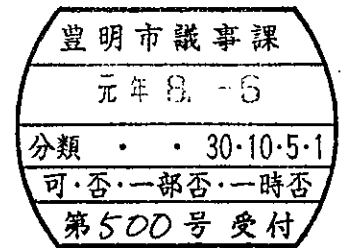 豊明市議事課
元年 8. -6
分類 ・ ・ 30・10・5・1
可・否・一部否・一時否
第500号 受付